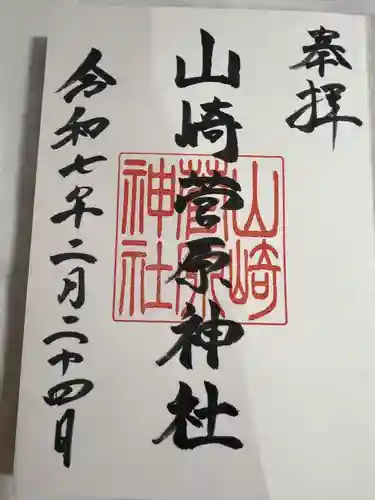 奉拝
山崎菅原神社
山崎
菅原
神社
令和七年二月二十四日